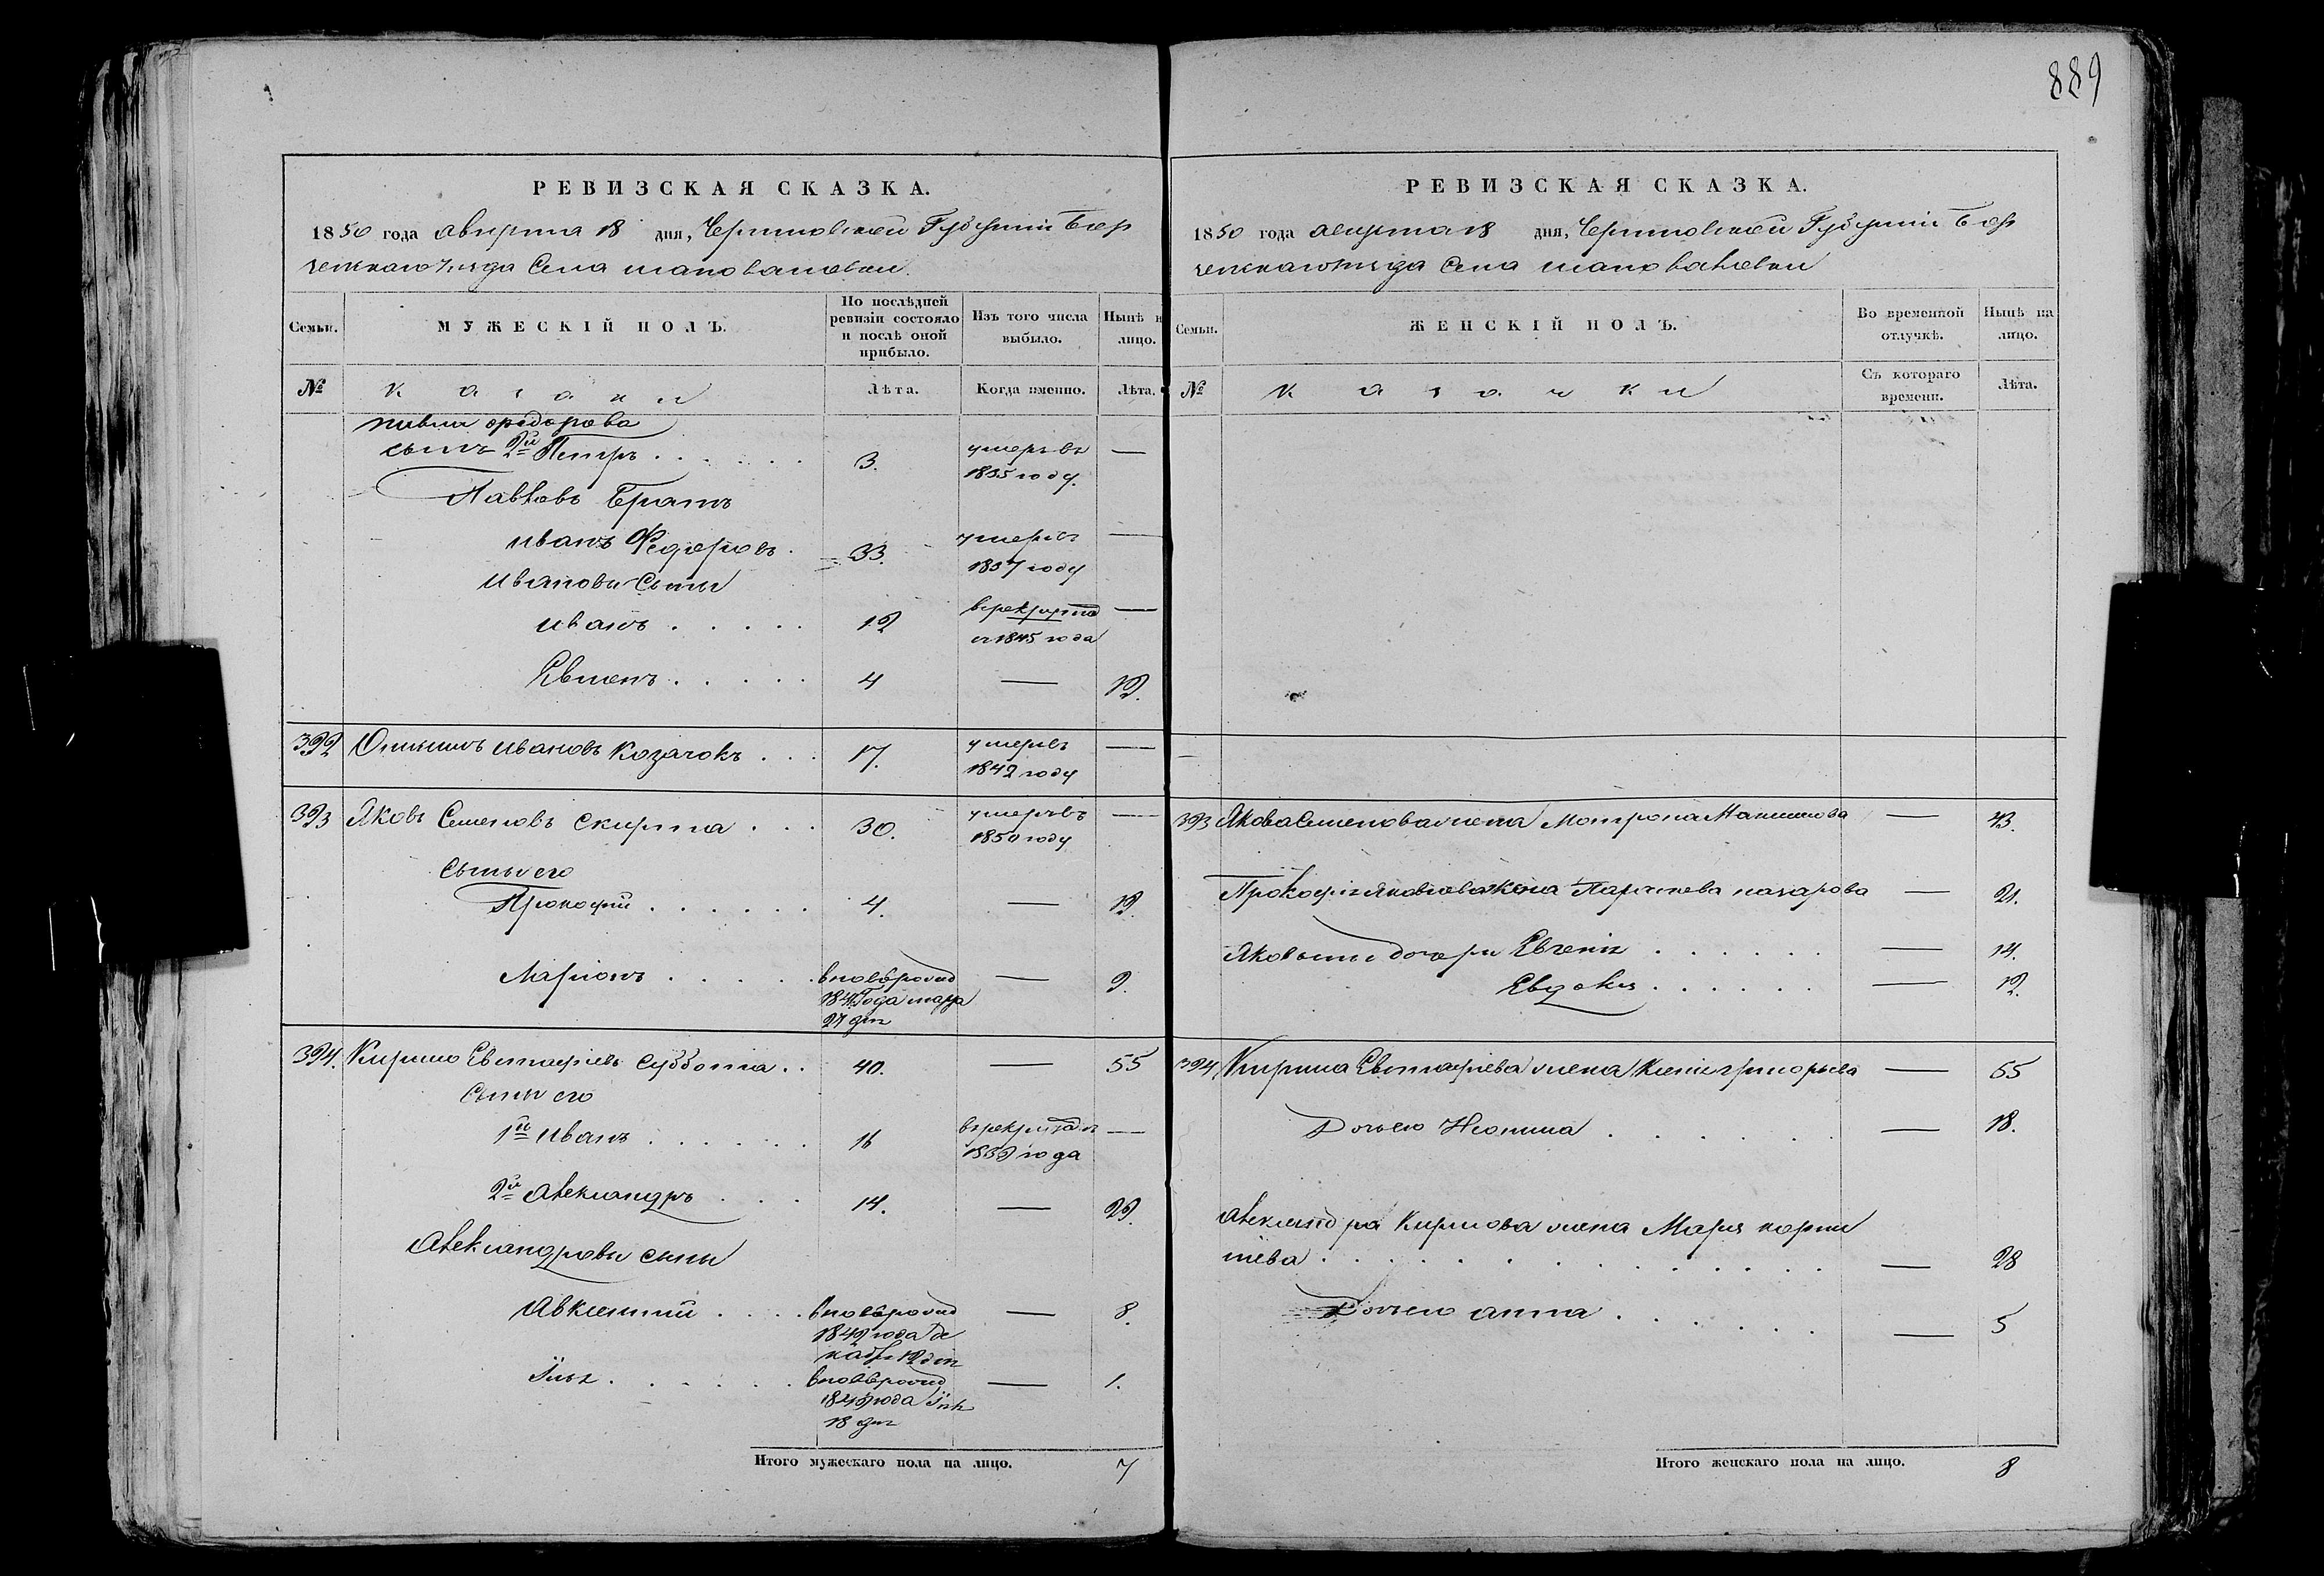 889
РЕВИЗСКАЯ СКАЗКА.
1850 года августа 18 дня, Черниговской Губернiи Бор
зенскаго уезда Села Шаповаловки.
Семьи.
МУЖЕСКIЙ ПОЛЪ.
По послѣдней ревизiи состояло и послѣ оной прибыло.
Изъ того числа выбыло.
Нынѣ н лицо.
№
казаки
Лѣта.
Когда именно.
Лѣта.
Федорова
сынъ 2й Петръ
3.
умеръ въ
1835 году.
Павловъ Братъ
Иванъ Федоровъ
33.
умеръ въ
1837 году
Ивановы Сыны
Иванъ
12
в рекрутах
с 1845 года
Евменъ
4
19.
392 Ивановъ Козачокъ
17.
умеръ въ
1842 году
393 Яковъ Семеновъ Скирта
30.
умеръ въ
1850 году
Сыны его
Прокофий
4.
19
Ларионъ
вновь рожд
года марта
27 дня
9.
394. Кирило Евстафиевъ Суббота
40.
55
Сыны его
1й Иванъ
16
в рекрутахъ
1839 года
2й Александръ
14.
29.
Александровы сыны
Авксентий
вновь рожд
1842 года де
кабря 12 дня
8.
Илья
вновь рожд
года
18 дня
1.
Итого мужескаго пола на лицо.
7
РЕВИЗСКАЯ СКАЗКА.
1850 года августа 18 дня, Черниговской Губернiи Бор
зенскаго уезда Села Шаповаловки
Семьи.
ЖЕНСКIЙ ПОЛЪ.
Во временной отлучкѣ.
Нынѣ на лицо.
№
казачки
Съ котораго времени.
Лѣта.
393 Якова Семенова жена Мотрона Максимова
43.
Прокофия Яковлева жена назарова
21.
дочери Евгения
14.
Евдокия
12.
394 Кирила Евстафиева жена Ксения григорьева
55
Дочь его
18.
Александра Кирилова жена Мария корни
лиева
28
Дочь его анна
5
Итого женскаго пола на лицо.
8